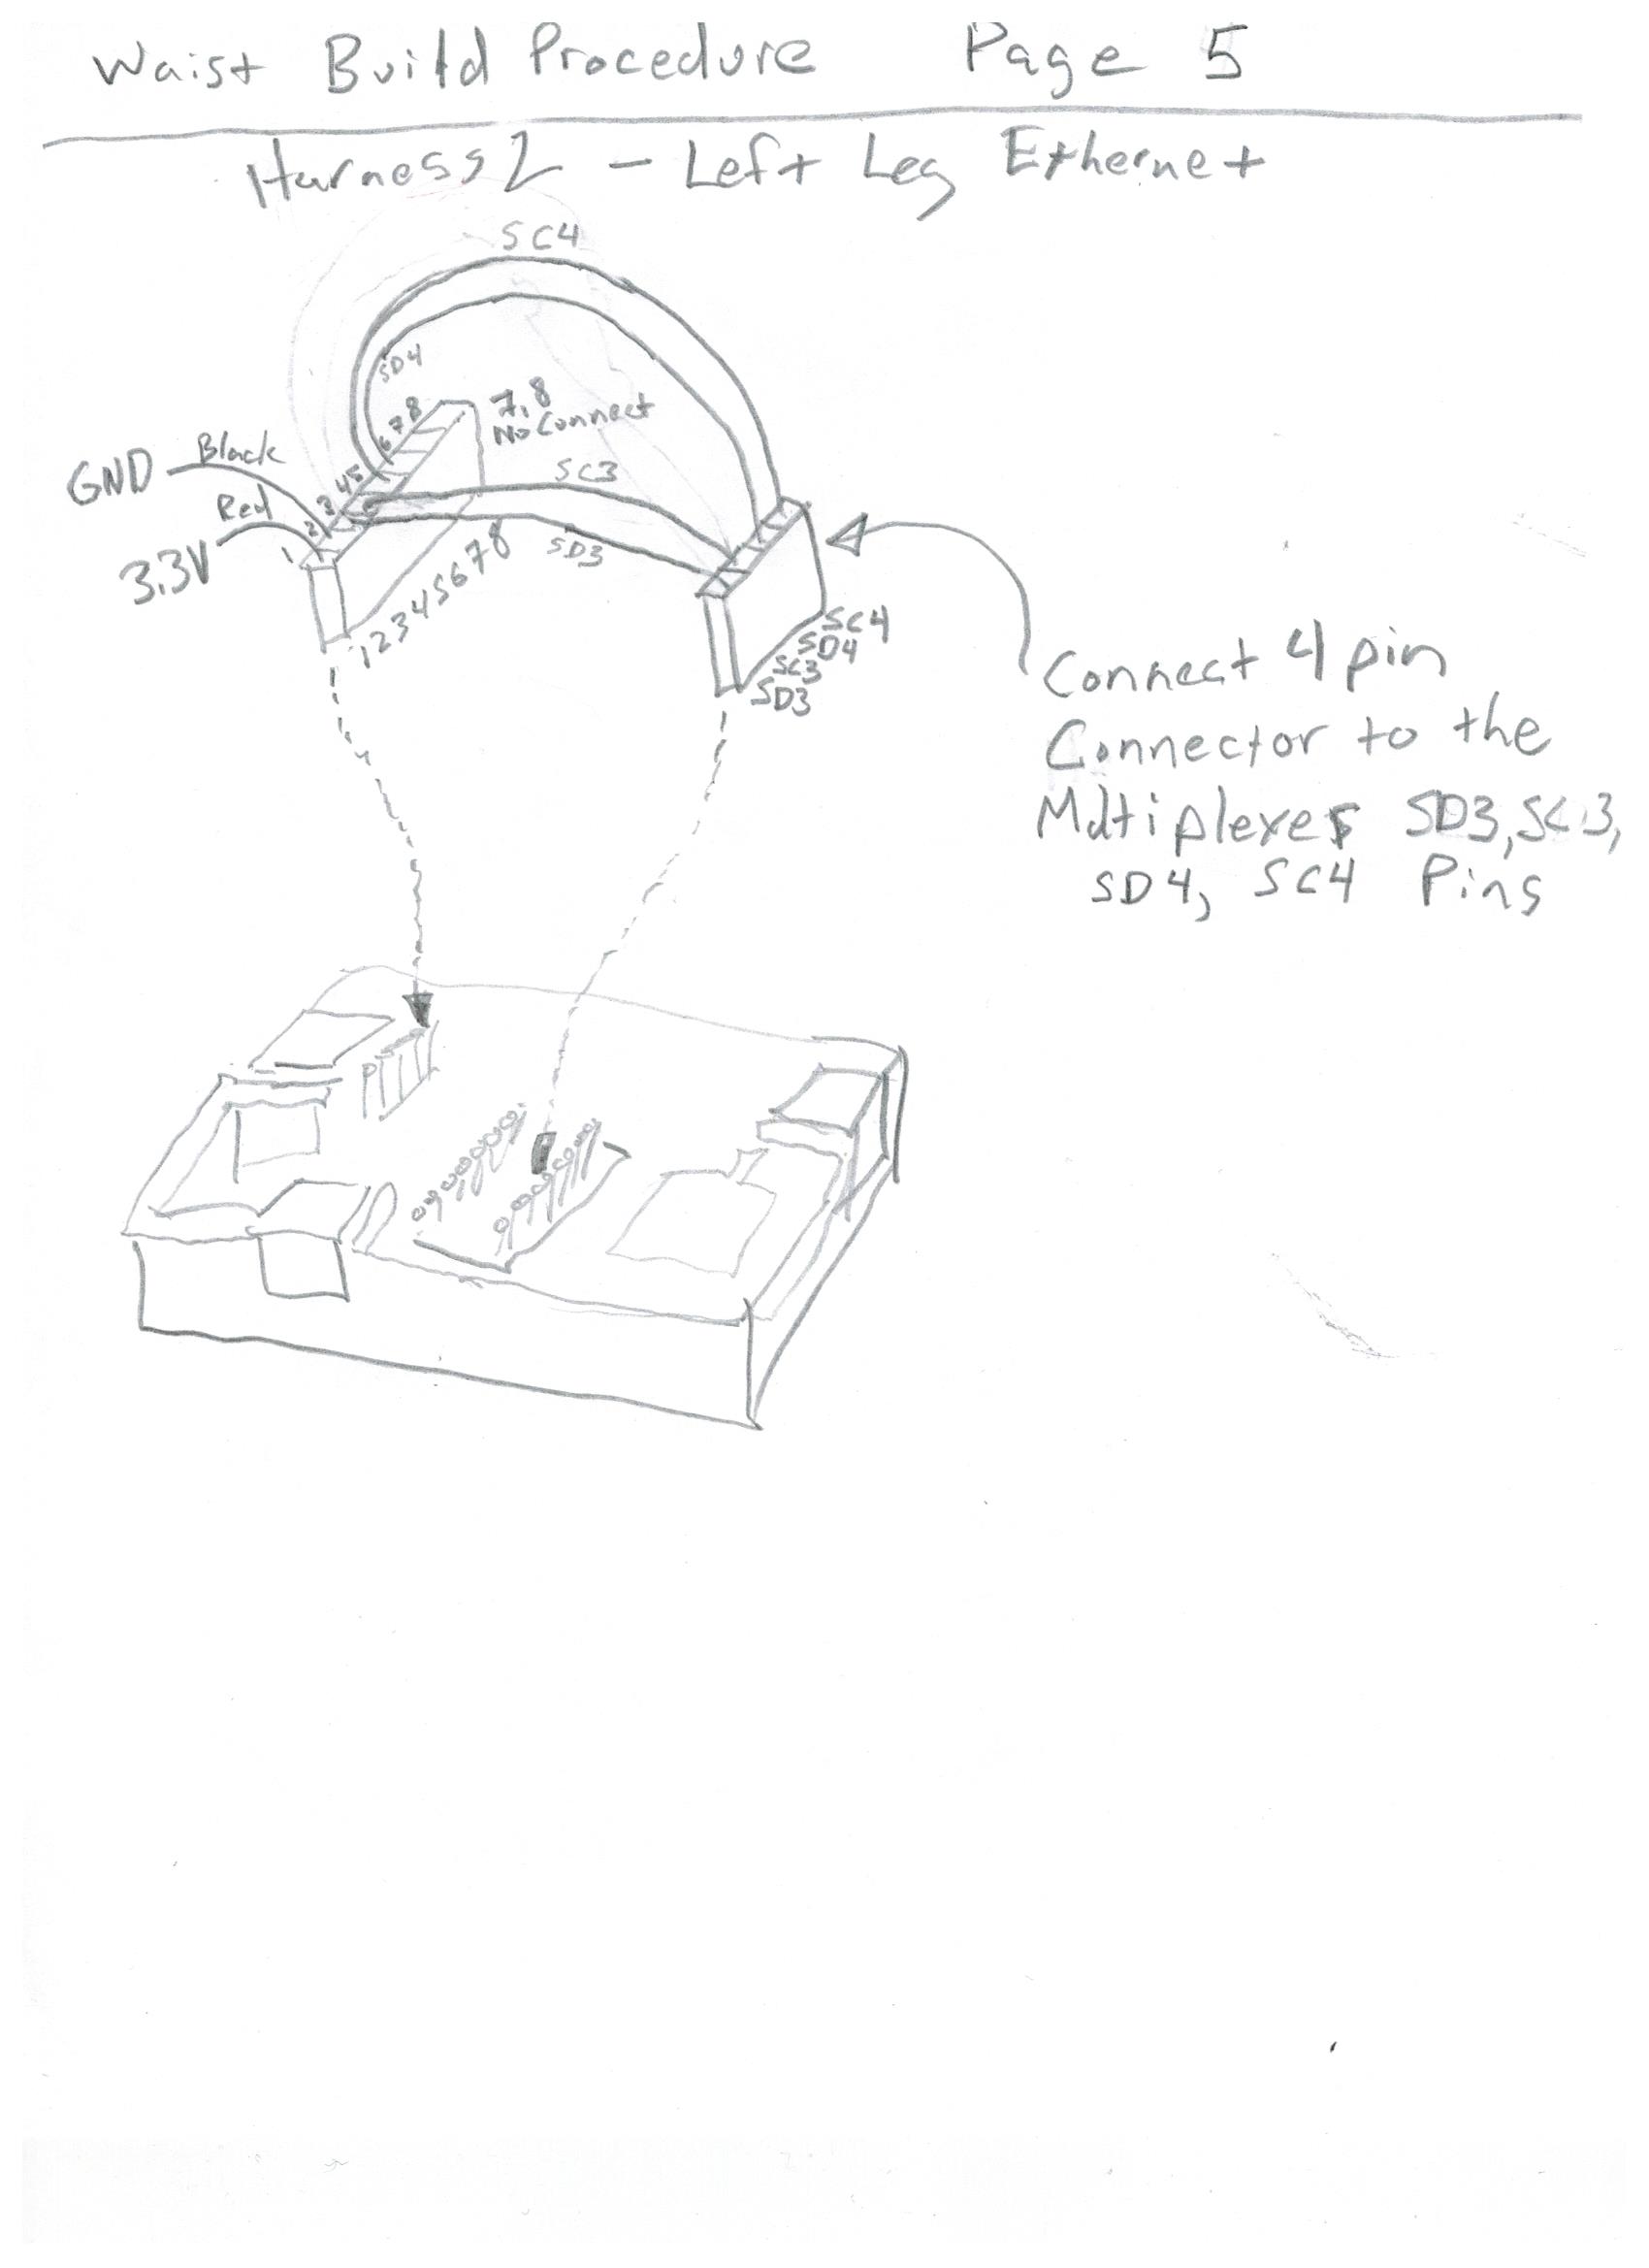 Waist Build Procedure Page 5
Harness 2 - Left Leg Ethernet
SC4
SD4
7,8
No Connect
1 2 3 4 5 6 7 8
GND Black
Red
3.3V
SC3
SD3
1 2 3 4 5 6 7 8
SC4
SD4
SC3
SD3
Connect 4 pin
Connector to the
Multiplexer SD3, SC3,
SD4, SC4 Pins